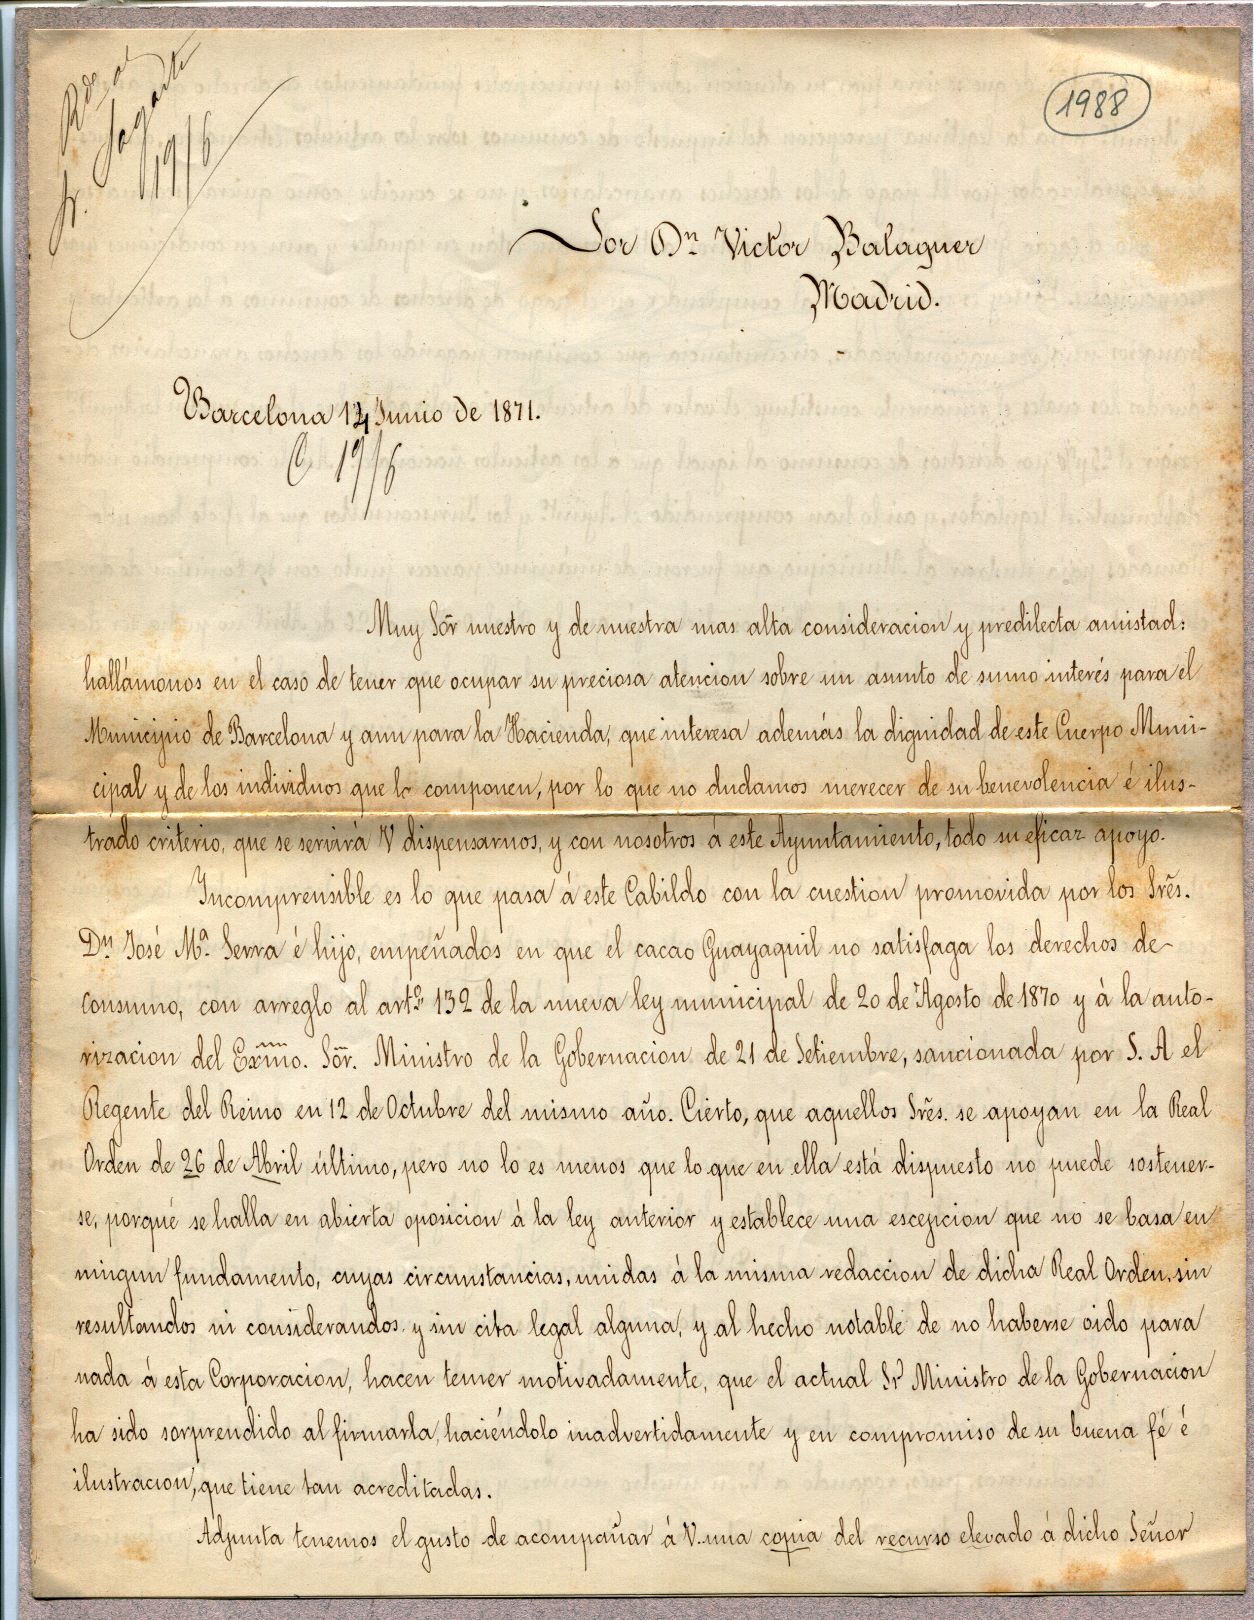 Rdo al
Sr. Sagasta
19/6
1988
Sor Dn Victor Balaguer
Madrid.
Barcelona 14 Junio de 1871.
C 19/6
Muy Sōr nuestro y de nuestra mas alta consideracion y predilecta amistad:
hallámonos en el caso de tener que ocupar su preciosa atencion sobre un asunto de sumo interés para el
Municipio de Barcelona y aun para la Hacienda, que interesa además la dignidad de este Cuerpo Muni-
cipal y de los individuos que lo componen, por lo que no dudamos merecer de su benevolencia é ilus-
trado criterio, que se servirá V dispensarnos, y con nosotros á este Ayuntamiento, todo su eficaz apoyo.
Incomprensible es lo que pasa á este Cabildo con la cuestion promovida por los Srēs.
Dn José Mª Serra é hijo, empeñados en que el cacao Guayaquil no satisfaga los derechos de
consumo, con arreglo al artº 132 de la nueva ley municipal de 20 de Agosto de 1870 y á la auto-
rizacion del Exmo. Sōr. Ministro de la Gobernacion de 21 de Setiembre, sancionada por S. A el
Regente del Reino en 12 de Octubre del mismo año. Cierto, que aquellos Srēs. se apoyan en la Real
Orden de 26 de Abril último, pero no lo es menos que lo que en ella está dispuesto no puede sostener-
se, porqué se halla en abierta oposicion á la ley anterior y establece una escepcion que no se basa en
ningun fundamento, cuyas circunstancias, unidas á la misma redaccion de dicha Real Orden, sin
resultandos ni considerandos y sin cita legal alguna, y al hecho notable de no haberse oido para
nada á esta Corporacion, hacen temer motivadamente, que el actual Sr Ministro de la Gobernacion
ha sido sorprendido al firmarla, haciéndolo inadvertidamente y en compromiso de su buena fé é
ilustracion, que tiene tan acreditadas.
Adjunta tenemos el gusto de acompañar á V. una copia del recurso elevado á dicho Señor